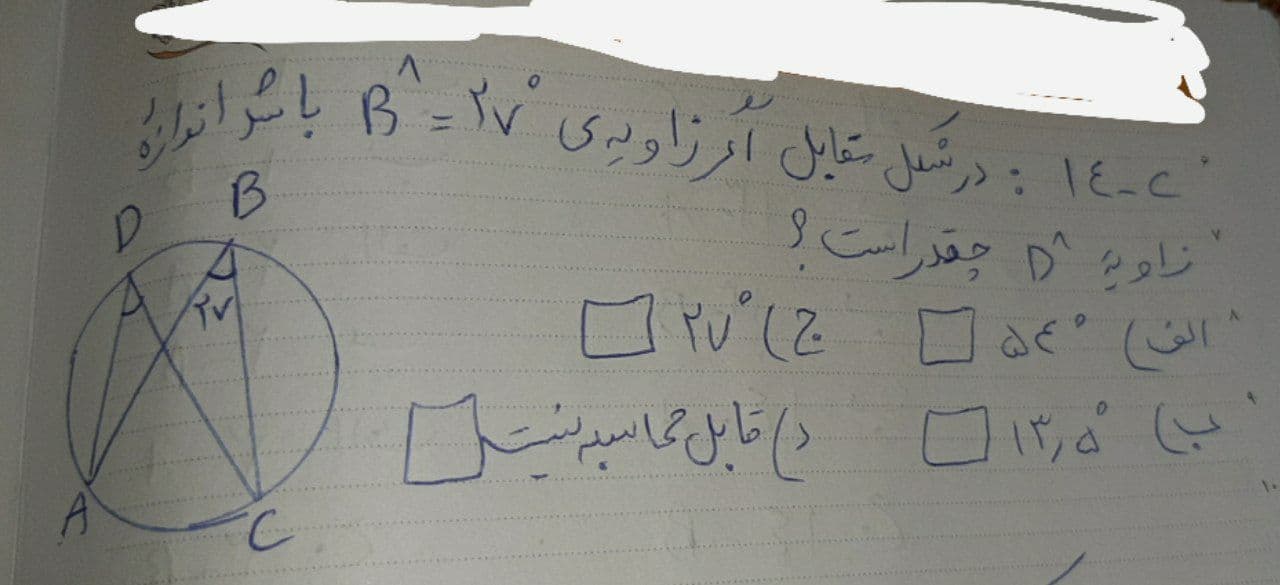 ۱٤-۲ : در شکل مقابل اگر زاویه‌ی B^ = ۲۷° باشد اندازهٔ
زاویهٔ D^ چقدر است؟
الف) ۵٤° □ ج) ۲۷° □
ب) ۱۳٫۵° □ د) قابل محاسبه نیست □
D B
۲۷
A C